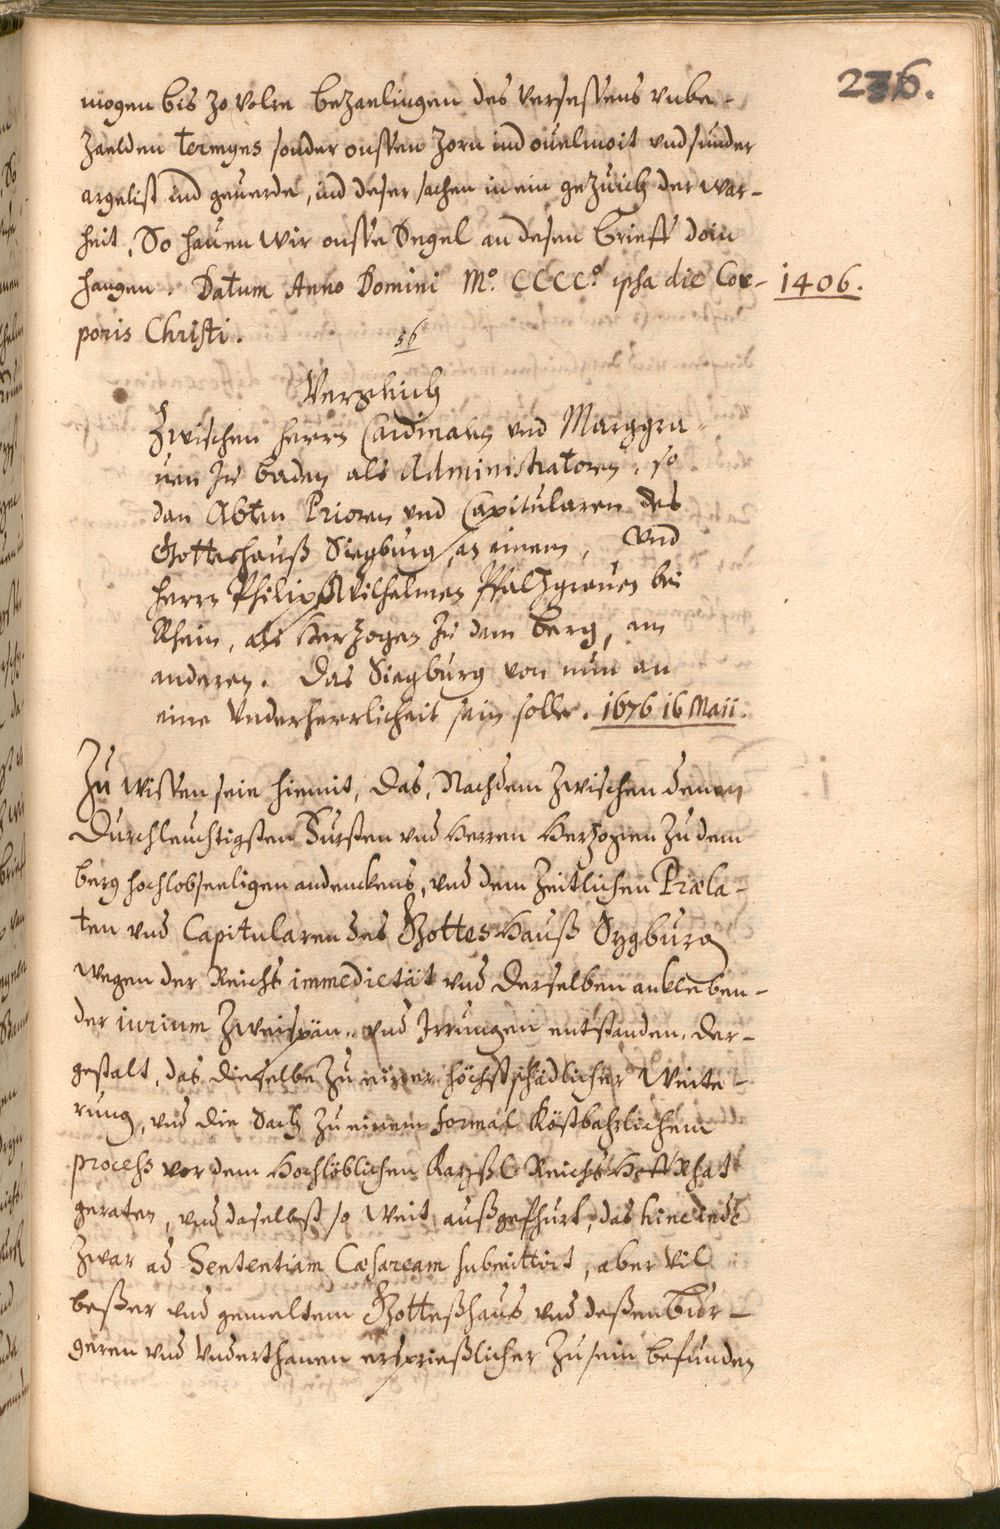 236.
mogen bis zo volre bezaelingen des versessens vnbe-
zaelden termyes sonder onssen zorn ind ouelmoit vnd sunder
argelist ind geuerde, ind deser sachen in ein gezuich der war-
heit, So hauen wir onsse Segel an desen brieff doin
hangen. Datum Anno Domini Mo. CCCCo ipsa die Cor- 1406.
poris Christi.
56
Verglich
Zwischen herrn Cardinalen vnd Marggra-
uen zu baden als Administratoren, so
dan Abten Prioren vnd Capitularen des
Gotteshauß Siegburg, an einem, vnd
herrn Philips Wilhelmen Pfaltzgrauen bei
Rhein, als Herzogen zu dem berg, am
anderen. Das Siegburg von nun an
eine Vnderherrlicheit sein solle. 1676 16 Maii.
Zu wissen seie hiemit, das, Nachdem zwischen denen
Durchleuchtigsten Fursten vnd Herren Herzogen zu dem
berg hochlobseeligen andenckens, vnd dem zeitlichen Præla-
ten vnd Capitularen des Gottes Hauß Sygburg
wegen der Reichs immedietät vnd derselben ankleben-
der iurium Zweispän- vnd Irrungen entstanden, der-
gestalt, das dieselbe zu einer höchstschädlicher Weite-
rung, vnd die Sach zu einem formal kostbahrlichem
process vor dem Hochlöblichen Kayßl Reichs Hoff Rhat
geraten, vnd daselbst so weit außgefhurt, das hinc inde
zwar ad Sententiam Cæsaream submittirt, aber vil
beßer vnd gemeltem Gotteßhaus vnd deßen Bur-
geren vnd Vnderthanen ersprießlicher zu sein befunden